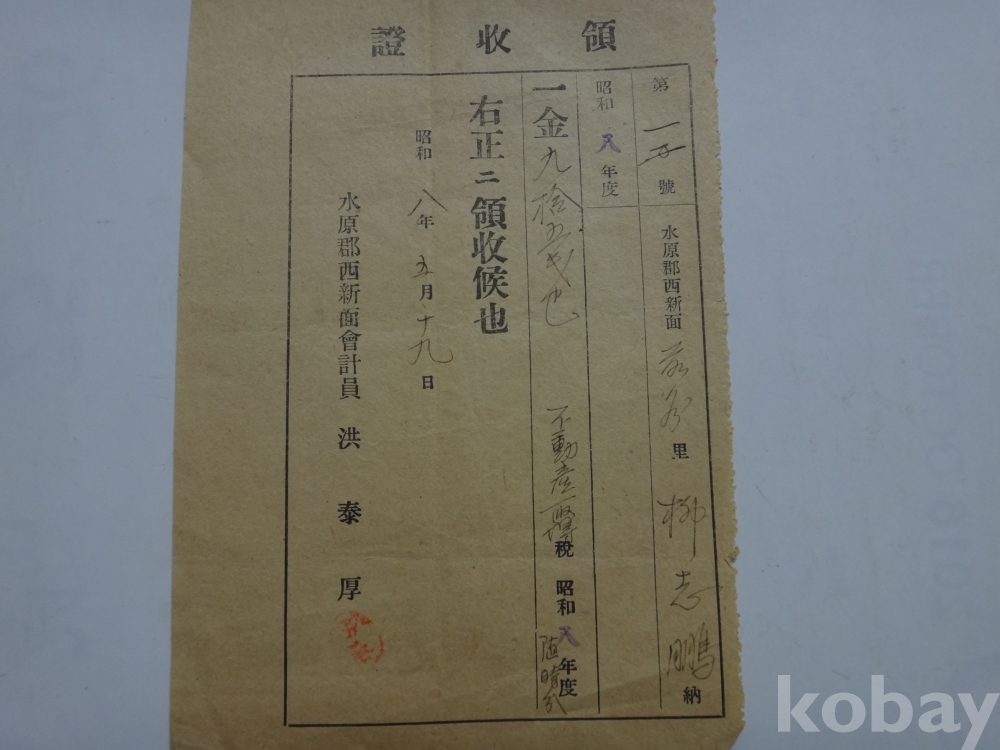 領收證
第 一 號 水原郡西新面 里 柳志鵬 納
昭和 八 年度
一金九拾五戋也 不動産取得稅 昭和 八 年度 随時分
右正ニ領收候也
昭和 八年 五月 十九日
水原郡西新面會計員 洪泰厚
kobay